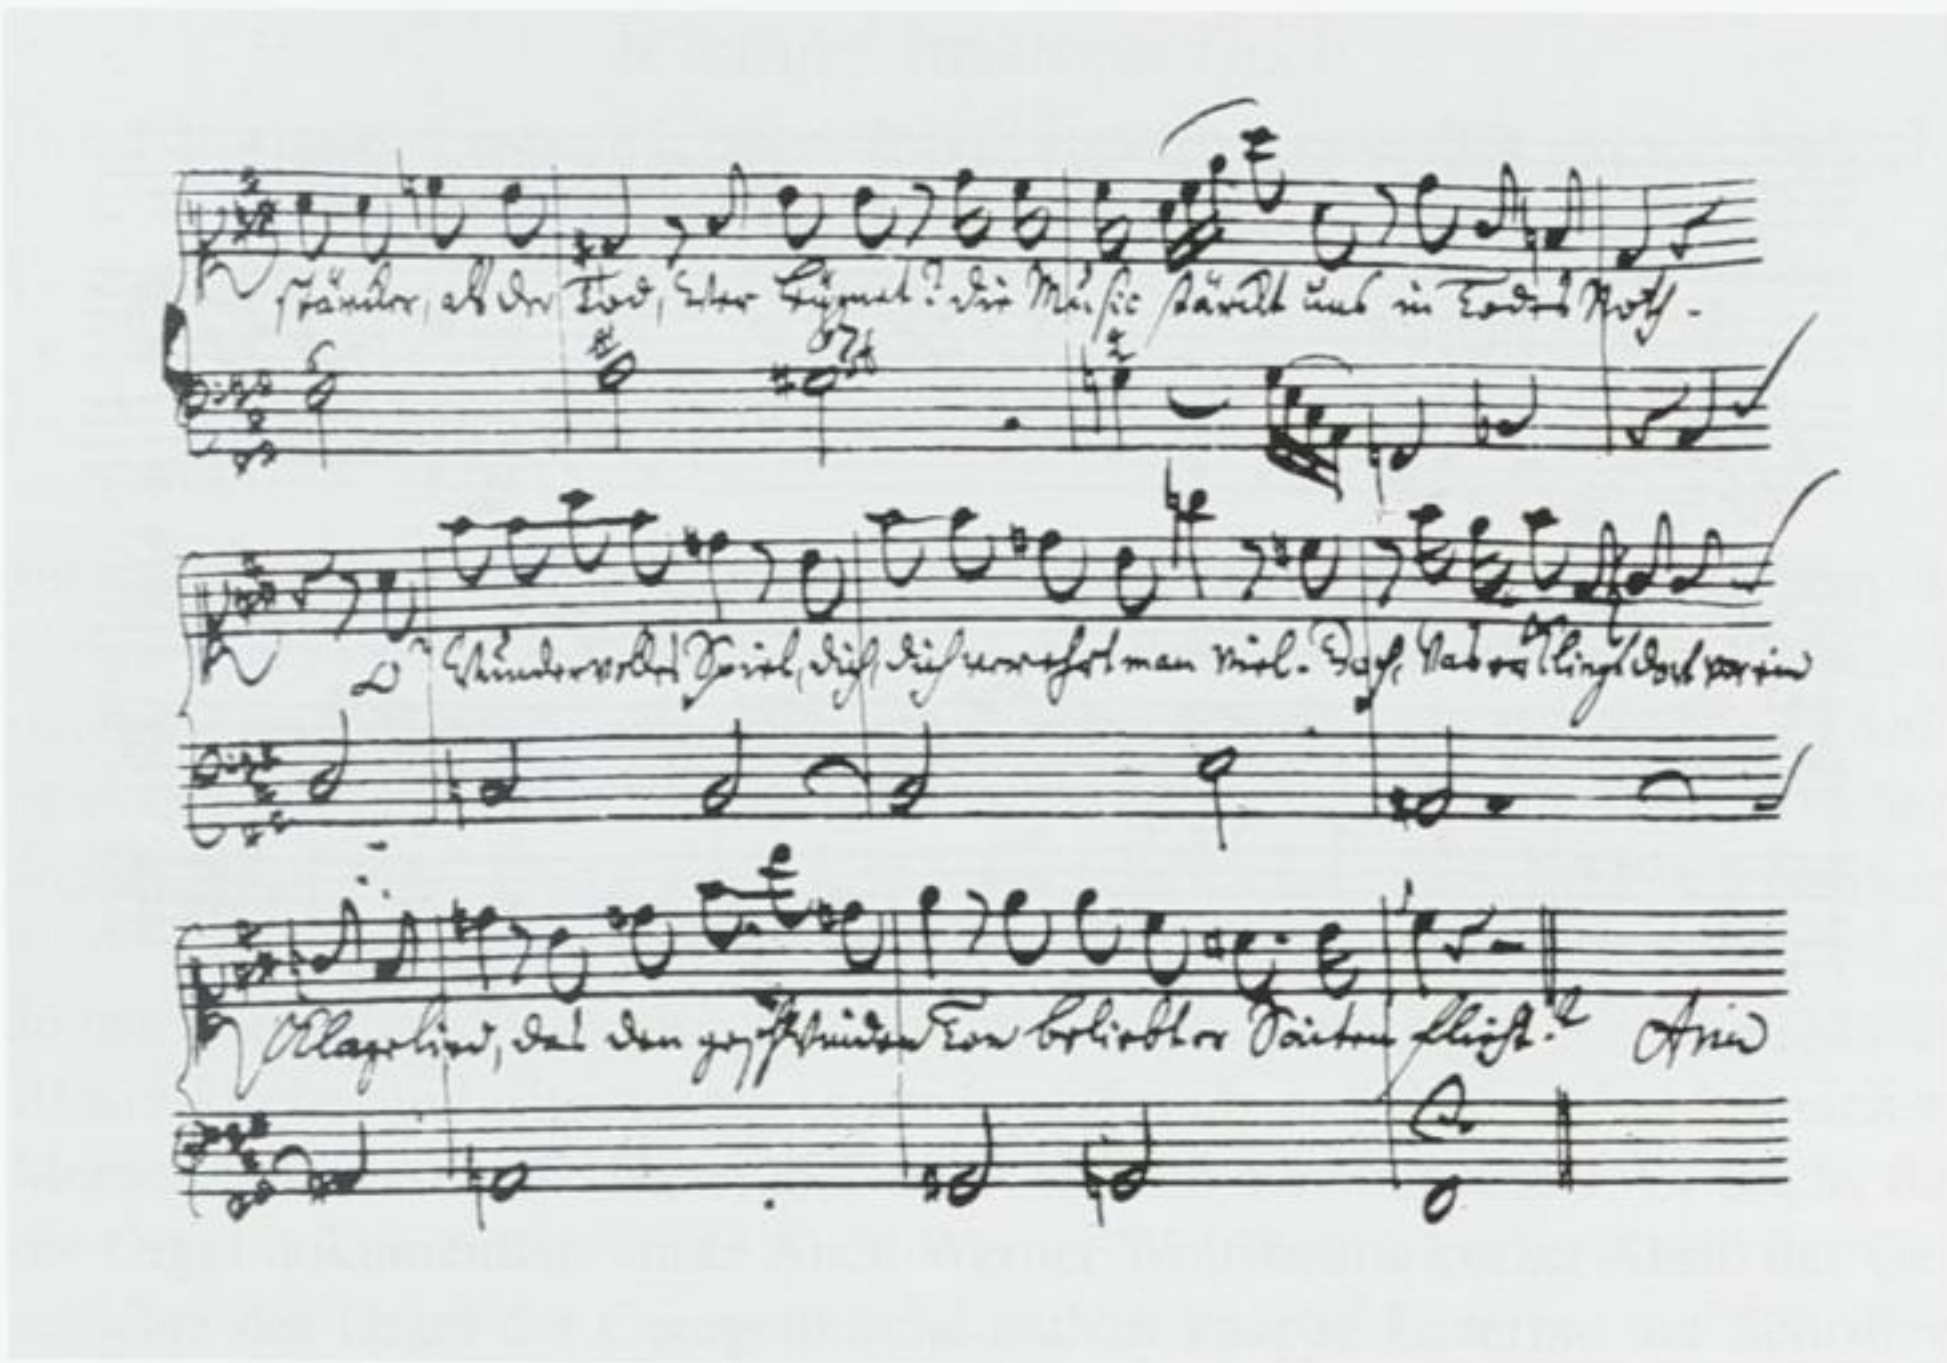 stärcker, als der Tod, wer leugnet? die Music stärckt uns in Todes Noth.
O Wundervolles Spiel, dich, dich verehrt man viel. Doch, was er liegt dort vor ein
Klagelied, das den geschwinden Ton beliebter Saiten flieht? Aria